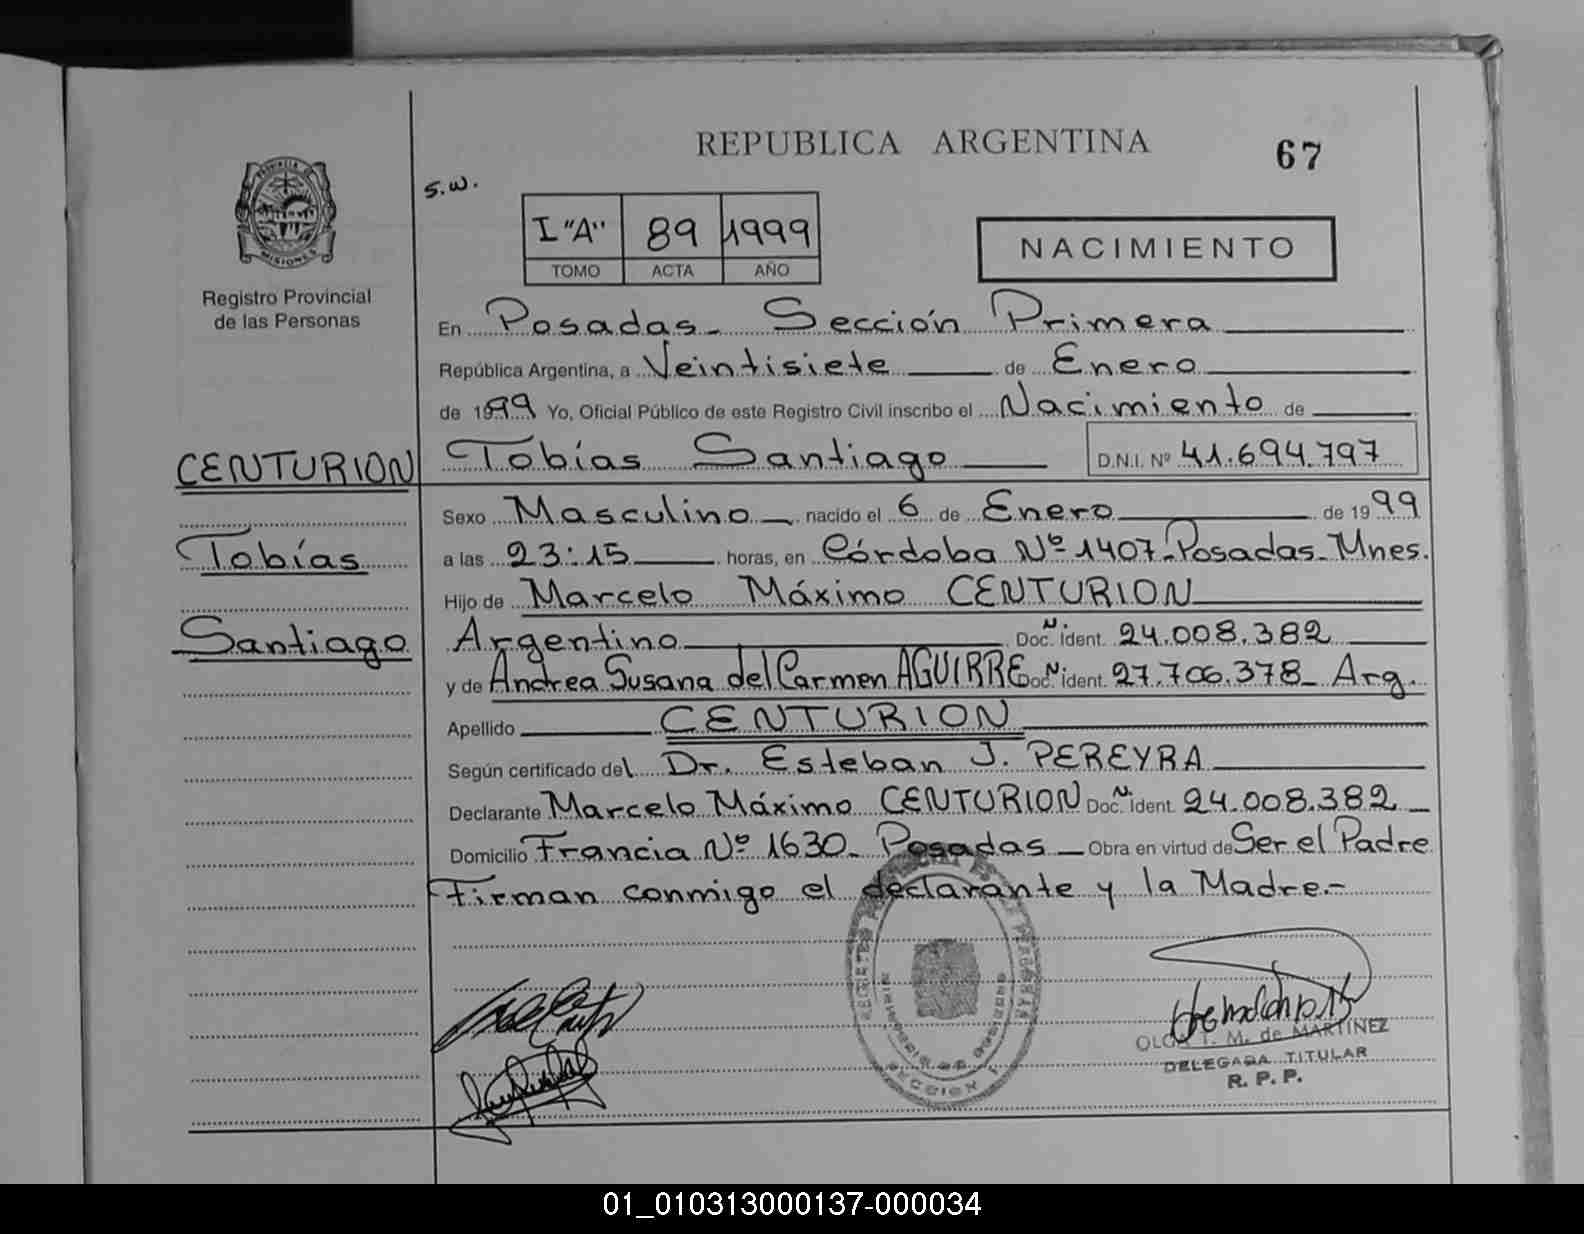 REPUBLICA ARGENTINA
67
s.w.
PROVINCIA DE
MISIONES
Registro Provincial
de las Personas
I "A" 89 1999
TOMO ACTA AÑO
NACIMIENTO
En Posadas - Sección Primera
República Argentina, a Veintisiete de Enero
de 1999 Yo, Oficial Público de este Registro Civil inscribo el Nacimiento de
CENTURION
Tobías Santiago D.N.I. Nº 41.694.797
Sexo Masculino nacido el 6 de Enero de 1999
Tobías
a las 23:15 horas, en Córdoba Nº 1407-Posadas-Mnes.
Hijo de Marcelo Máximo CENTURION
Santiago
Argentino Doc. N. Ident. 24.008.382
y de Andrea Susana del Carmen AGUIRRE Doc. N. Ident. 27.706.378 - Arg.
Apellido CENTURION
Según certificado del Dr. Esteban J. PEREYRA
Declarante Marcelo Máximo CENTURION Doc. N. Ident. 24.008.382 -
Domicilio Francia Nº 1630 - Posadas - Obra en virtud de Ser el Padre
Firman conmigo el declarante y la Madre.-
SECCION 1
OLGA T. M. de MARTINEZ
DELEGADA TITULAR
R. P. P.
01_010313000137-000034